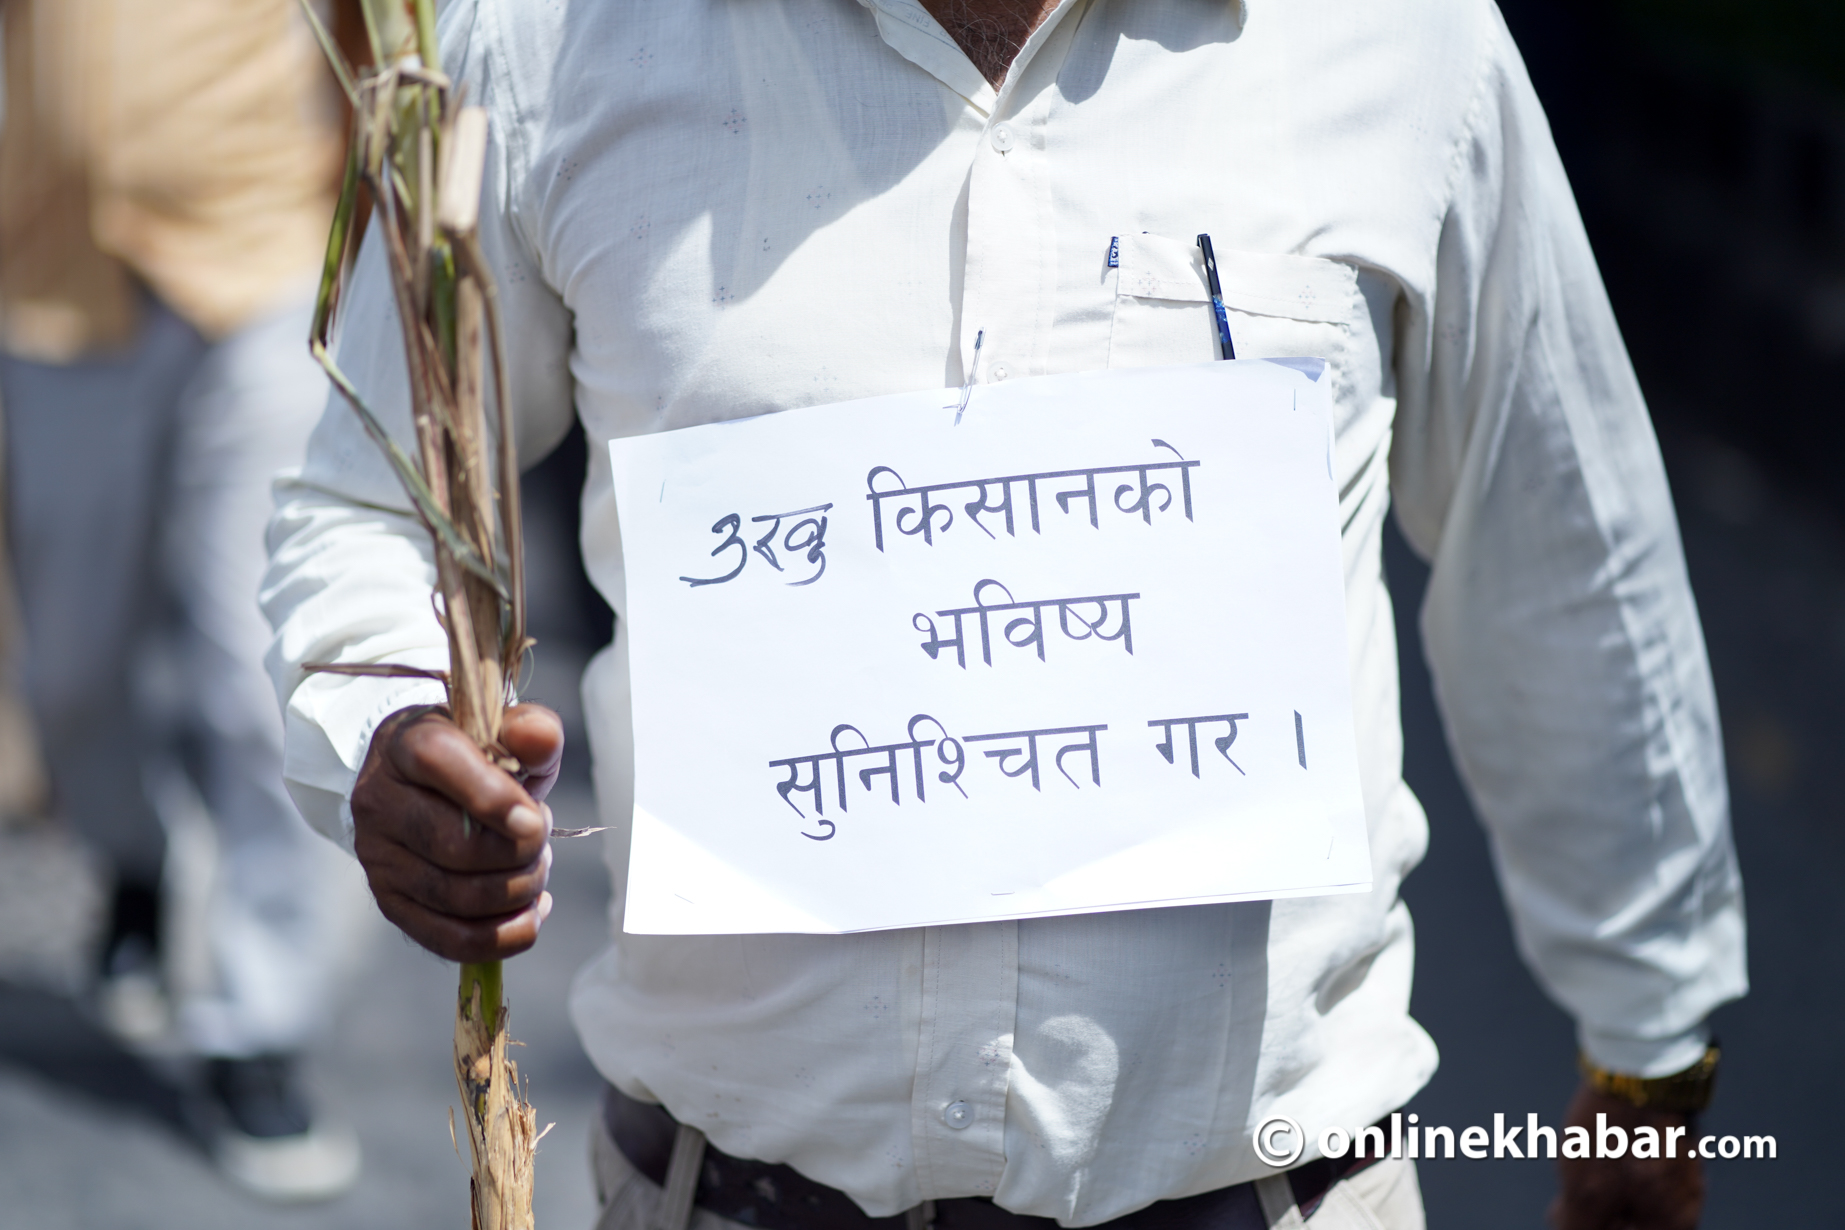 उखु किसानको
भविष्य
सुनिश्चित गर ।
© onlinekhabar.com